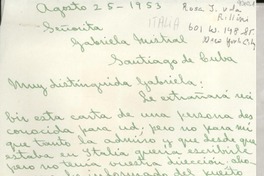 Agosto 25-1953
Rosa J. vda
Rillini
601 W. 148 St.
New York City
ITALIA
Señorita
Gabriela Mistral
Santiago de Cuba
Muy distinguida Gabriela:
Se extrañará reci
bir esta carta de una persona des
conocida para ud; pero no para mí
que tanto la admiro y que desde que
estaba en Italia quería escribirle
pero no tenía vuestra dirección; aho